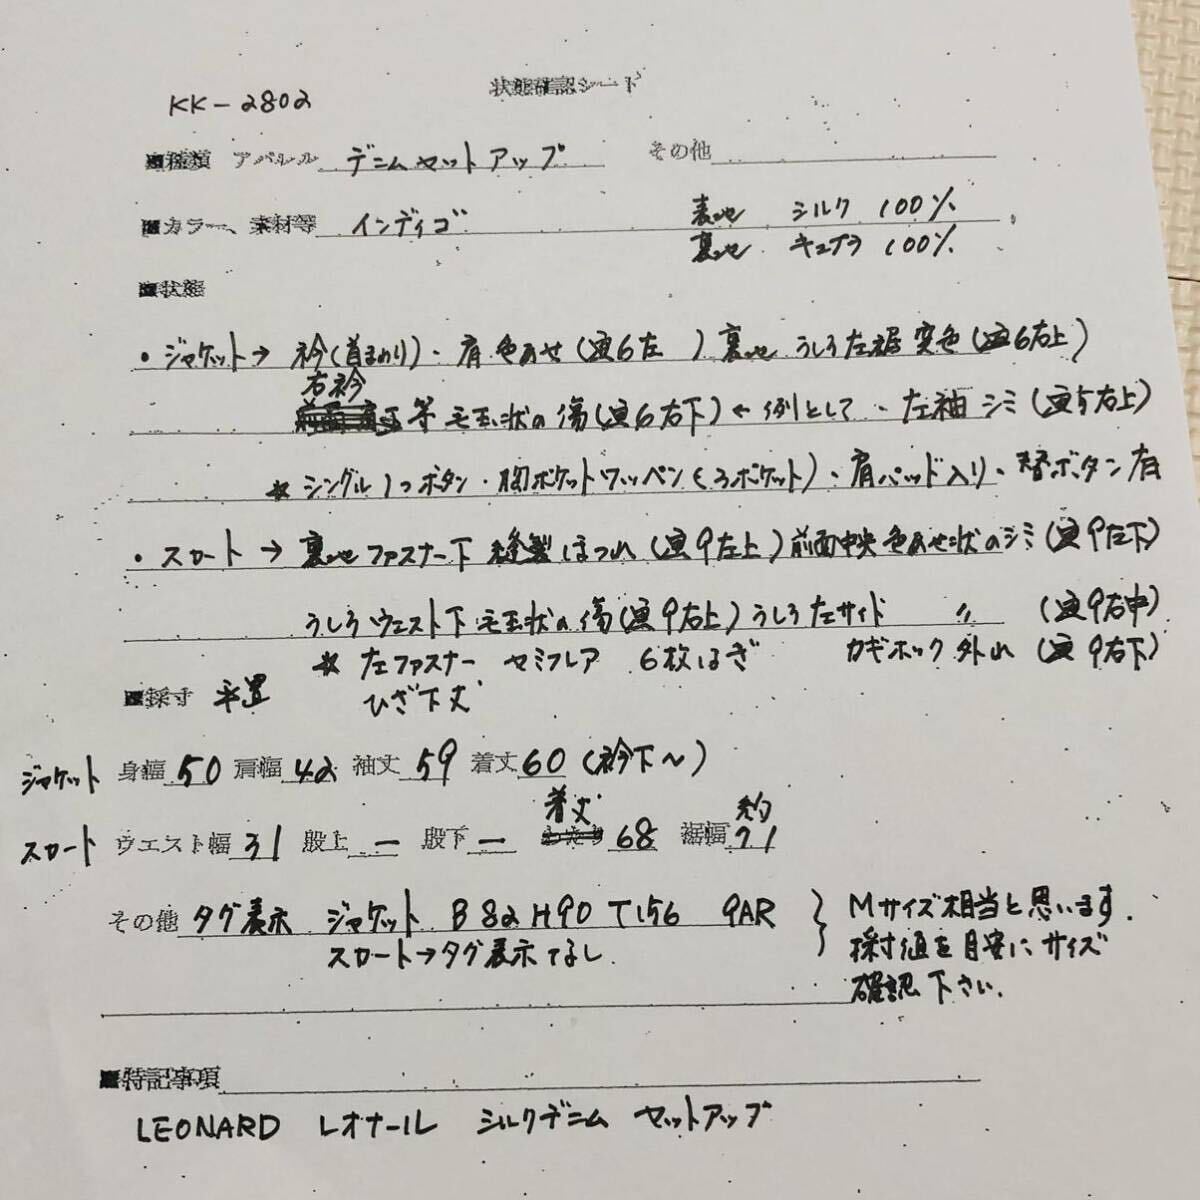 状態確認シート
KK-2802
■種類 アパレル デニムセットアップ その他
■カラー、素材等 インディゴ 表地 シルク 100%
裏地 キュプラ 100%
■状態
・ジャケット→ 衿(首まわり)・肩 色あせ(画6左 ) 裏地 うしろ左裾 変色(画6右上)
右衿
等 毛玉状の傷(画6右下)←例として・左袖 シミ(画5右上)
* シングル1つボタン・胸ポケットワッペン(3ポケット)・肩パッド入り・替ボタン有
・スカート→ 裏地ファスナー下 縫製ほつれ(画9左上)前面中央色あせ状のシミ(画9左下)
うしろウェスト下毛玉状の傷(画9右上)うしろ左サイド 〃 (画9右中)
* 左ファスナー セミフレア 6枚はぎ カギホック外れ(画9右下)
■採寸 平置 ひざ下丈
ジャケット 身幅 50 肩幅 42 袖丈 59 着丈 60 (衿下～)
スカート ウエスト幅 31 股上 ー 股下 ー 着丈 68 裾幅 約71
その他 タグ表示 ジャケット B82 H90 T156 9AR } Mサイズ相当と思います.
スカート→タグ表示なし. 採寸値を目安にサイズ
確認下さい.
■特記事項
LEONARD レオナール シルクデニム セットアップ